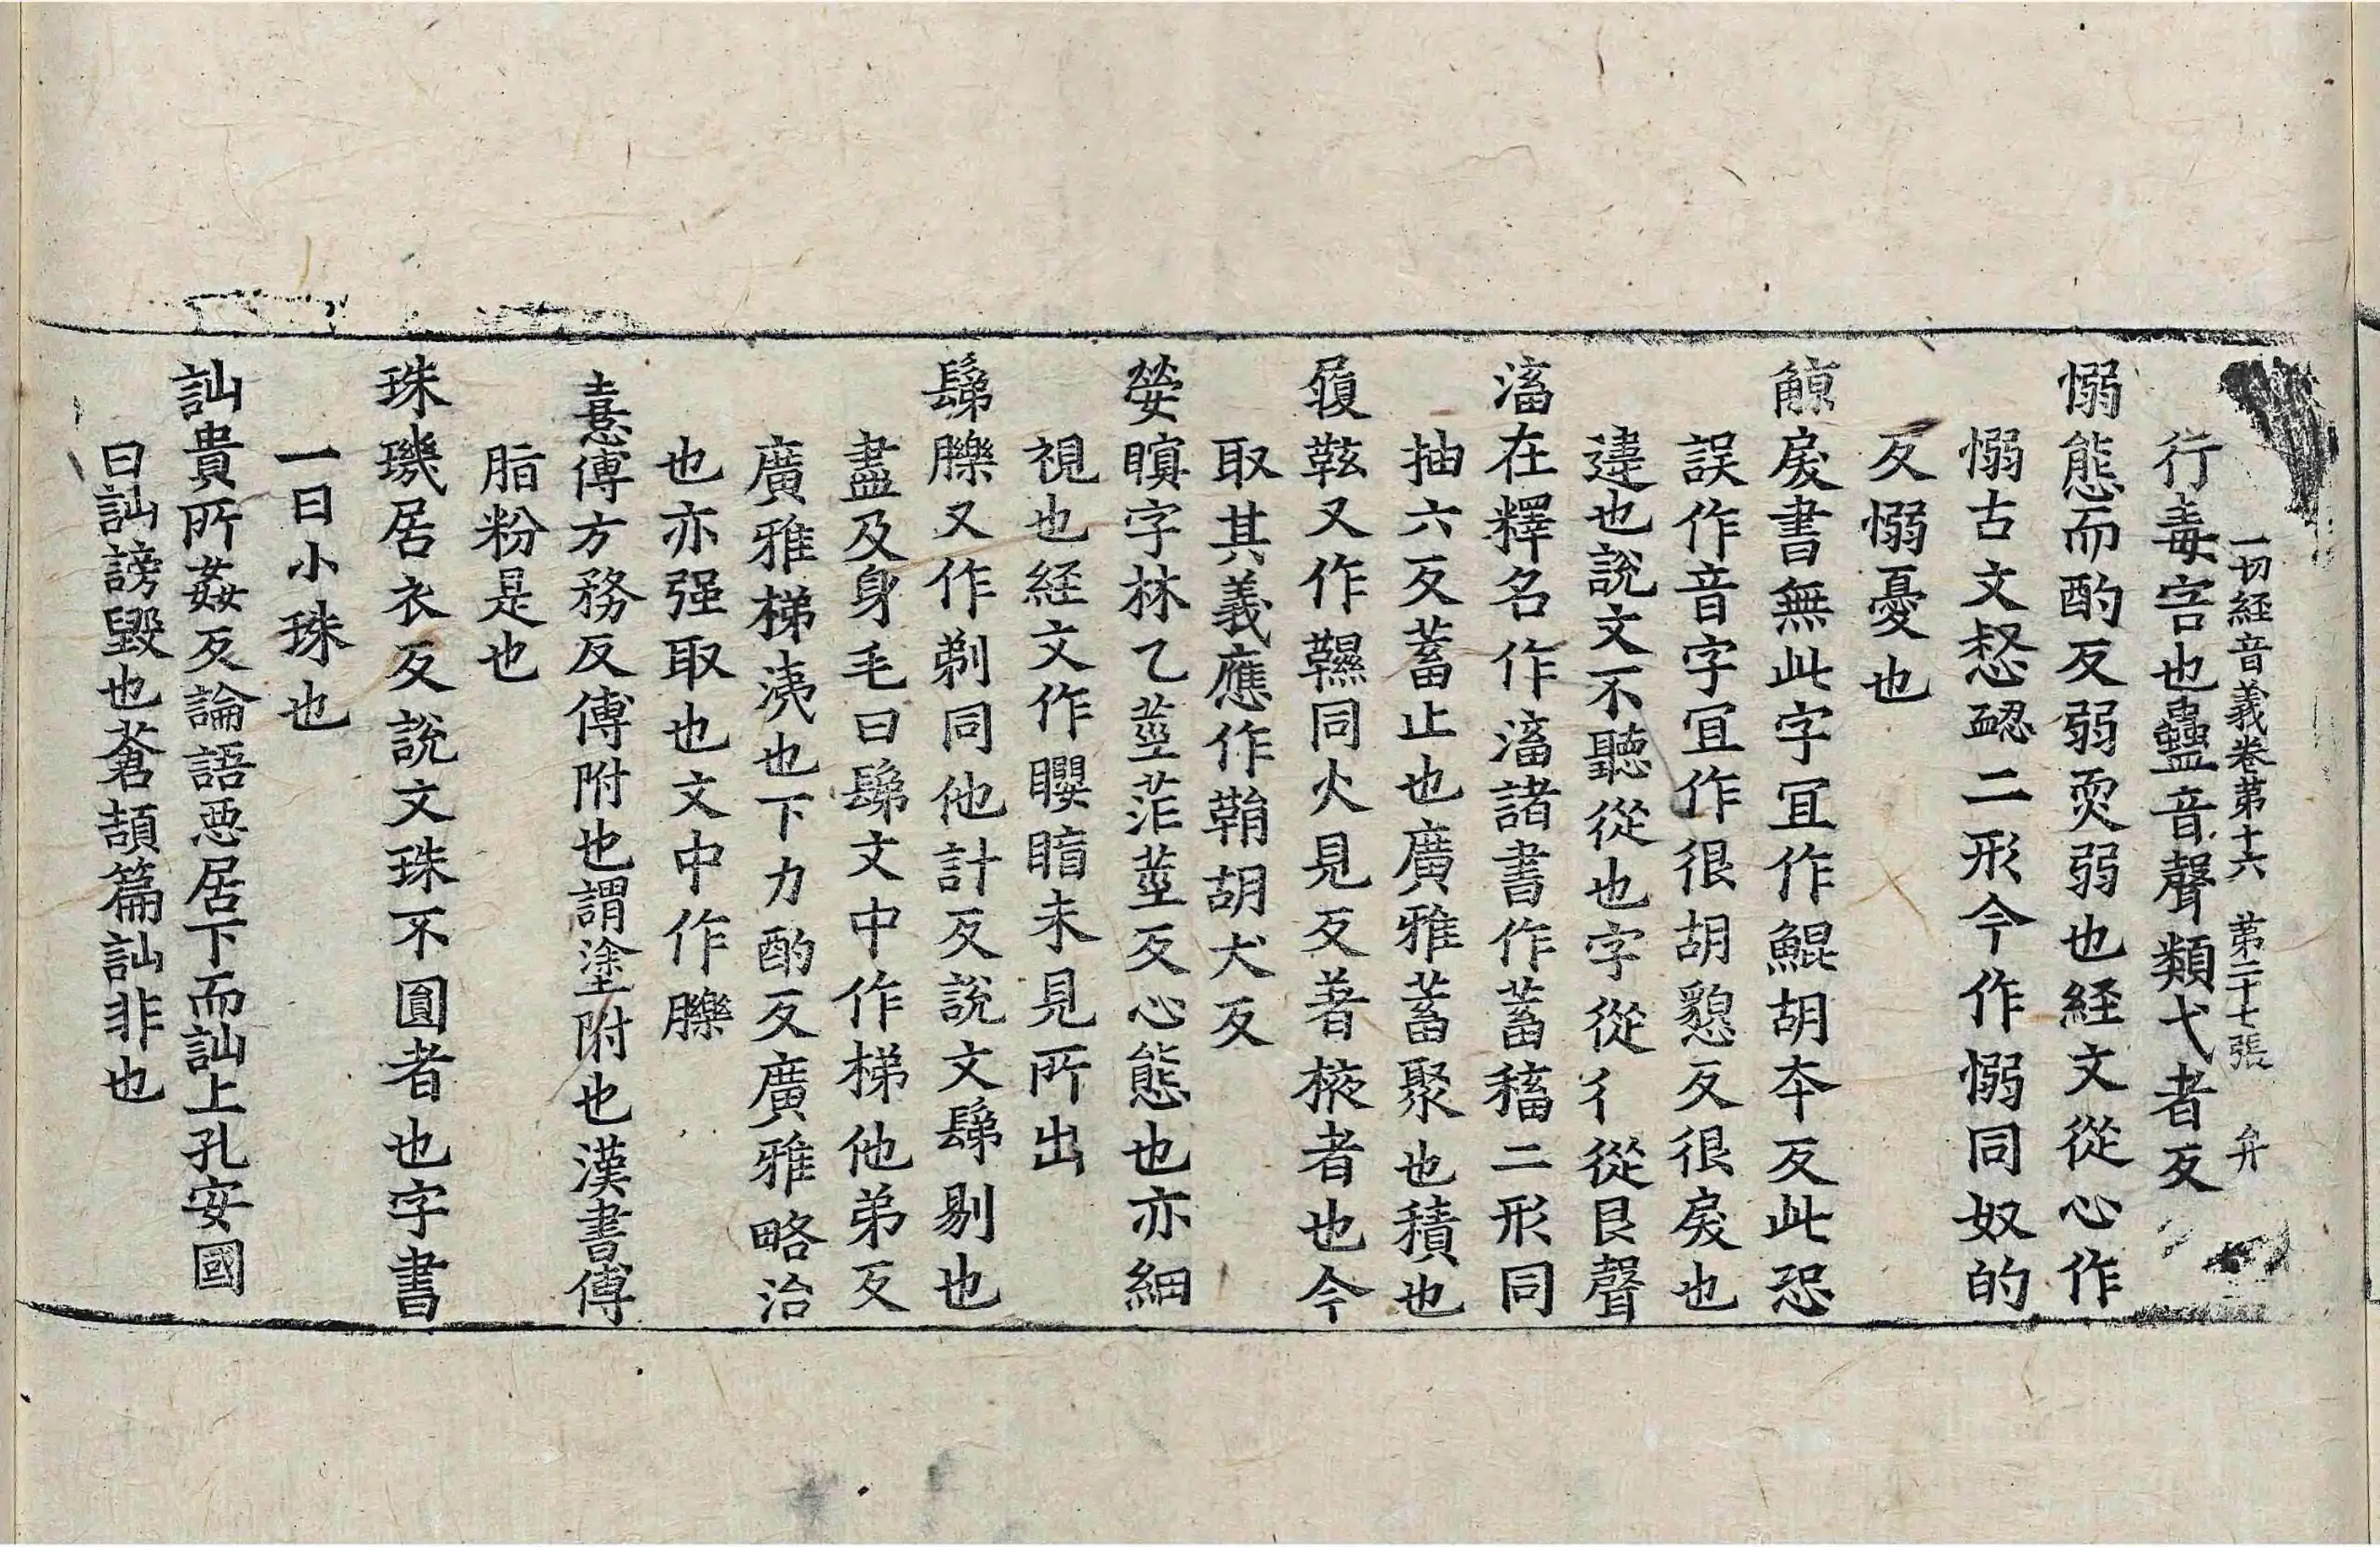 一切経音義卷第十六 第二十七張 弁
行毒害也蠱音聲類弋者反
愵態而酌反弱耎弱也経文從心作
愵古文惄𢚱二形今作愵同奴的
反愵憂也
䱭戾書無此字冝作鯤胡夲反此恐
誤作音字冝作很胡懇反很戾也
違也說文不聽從也字從彳從艮聲
滀在釋名作滀諸書作蓄稸二形同
抽六反蓄止也廣雅蓄聚也積也
履䩙又作韅同火見反著掖者也今
取其義應作鞙胡犬反
嫈瞑字林乙莖茫莖反心態也亦細
視也経文作矎暗未見所出
鬀髍又作剃同他計反說文鬀剔也
盡及身毛曰鬀文中作梯他弟反
廣雅梯洟也下力酌反廣雅略治
也亦强取也文中作擽
憙傅方務反傅附也謂塗附也漢書傅
脂粉是也
珠璣居衣反說文珠不圓者也字書
一曰小珠也
訕貴所姦反論語惡居下而訕上孔安國
曰訕謗毀也蒼頡篇訕非也